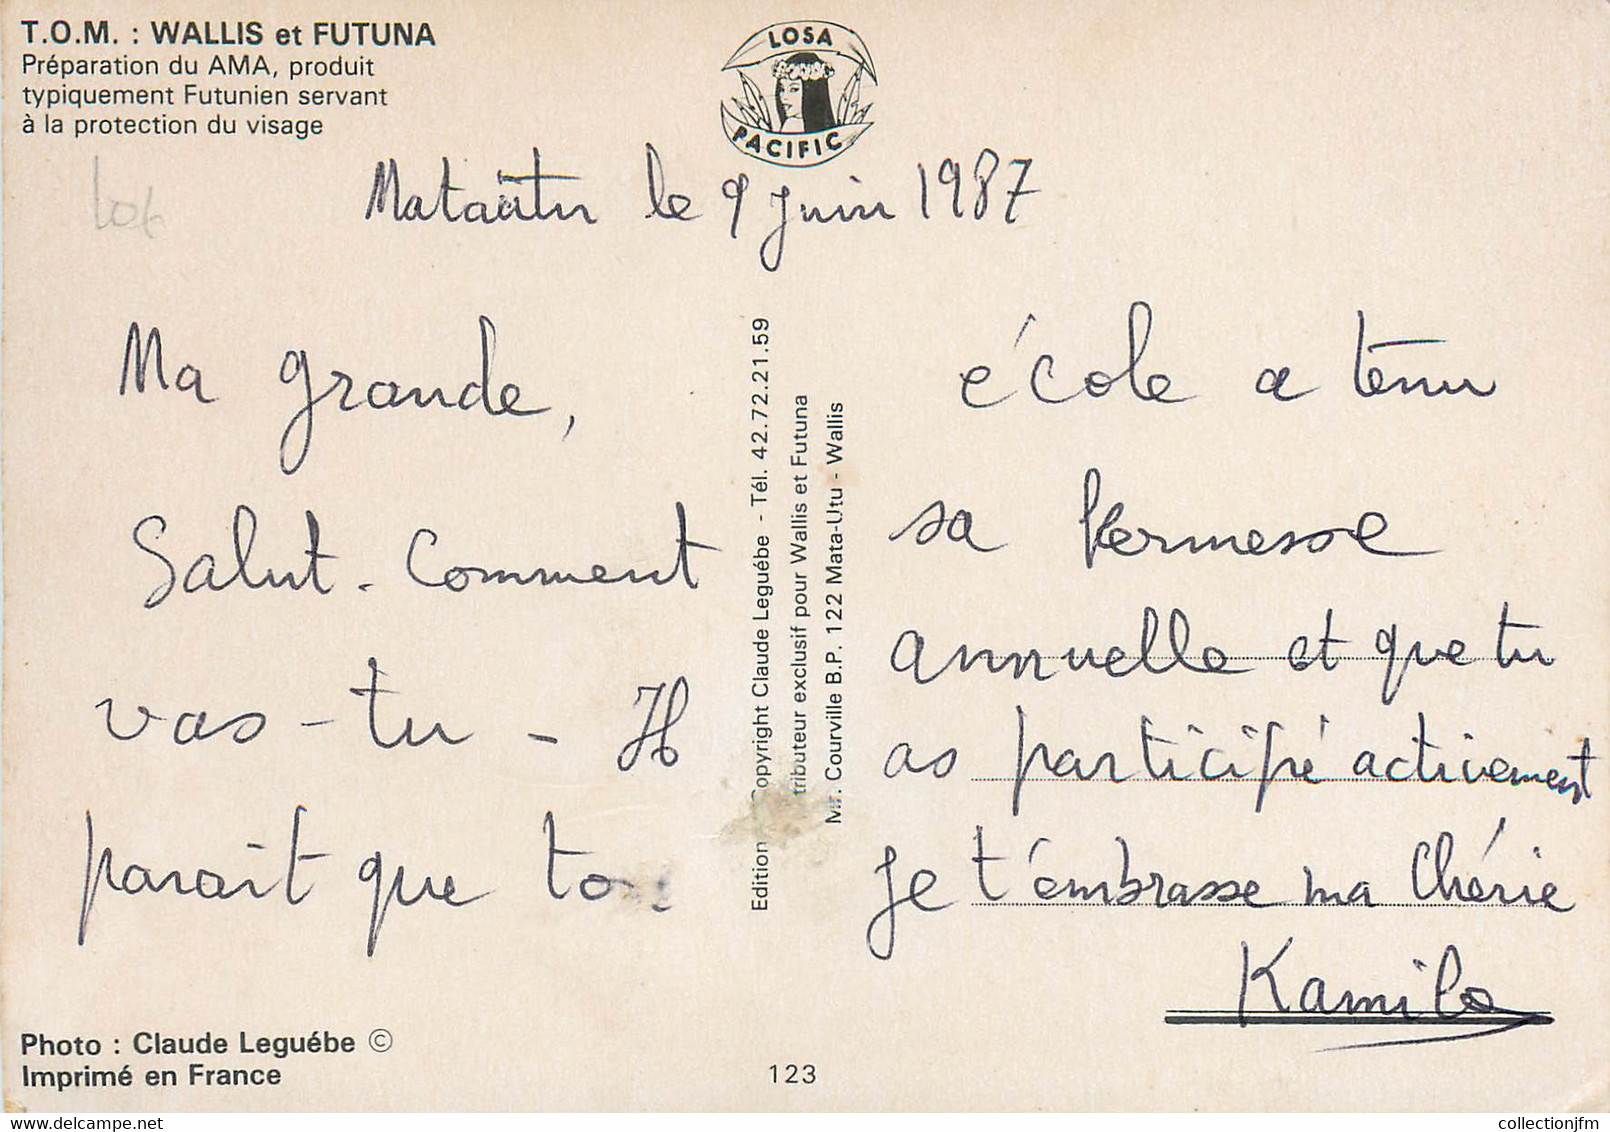 T.O.M. : WALLIS et FUTUNA
Préparation du AMA, produit
typiquement Futunien servant
à la protection du visage
LOSA
PACIFIC
le 9 Juin 1987
Ma grande,
Salut. Comment
vas-tu - Il
parait que
école a tenu
sa kermesse
annuelle et que tu
as participé activement
Je t'embrasse ma Chérie
Kamilo
Edition Copyright Claude Leguébe - Tél. 42.72.21.59
tributeur exclusif pour Wallis et Futuna
Mr. Courville B.P. 122 Mata-Utu - Wallis
Photo : Claude Leguébe ©
Imprimé en France
123
collectionjfm